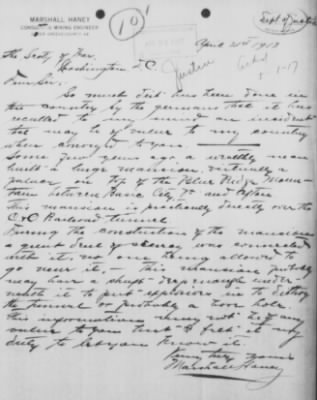 MARSHALL HANEY
CONSULTING MINING ENGINEER
April 21st 1917
The Secty of War,
Washington D.C.
Dear Sir:
So much dirt has been done in
this country by the germans that it has
recalled to my mind an incident
that may be of value to my country
when conveyed to you.
Some few years ago, a wealthy man
built a huge mansion, virtually a
palace on top of the Blue Ridge Moun-
tain between Basic City, Va and Afton
This mansion is practically directly over the
C & O Railroad tunnel.
During the construction of the mansion
a great deal of secrecy was connected
with it, no one being allowed to
go near it. This mansion probably
may have a shaft deep enough under-
neath it to put explosives in to destroy
the tunnel or probably a bore hole.
This information may not be of any
value to you but I feel it my
duty to let you know it.
Very truly yours
Marshall Haney
Dept of Justice
Justice
5-1-17